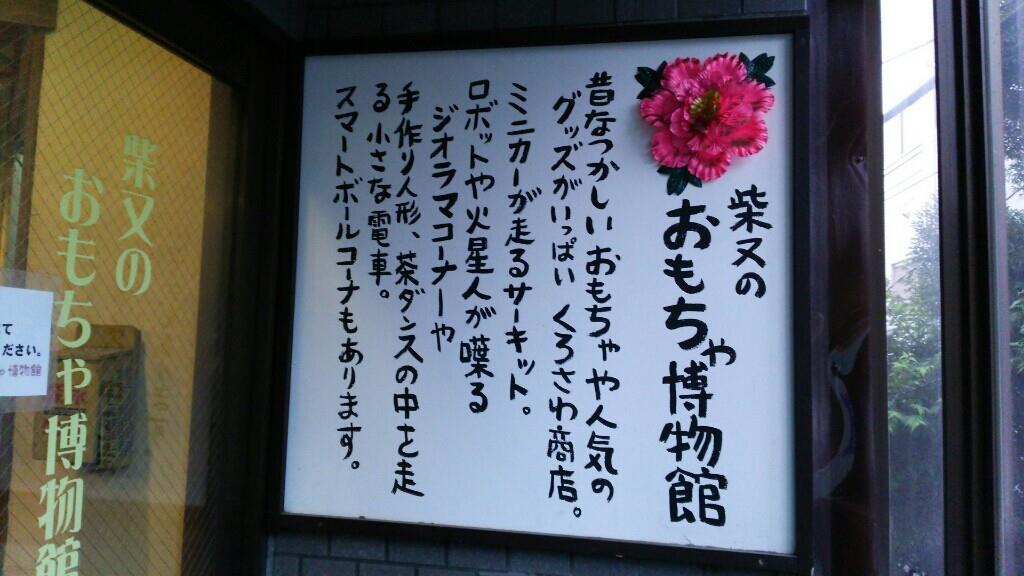 柴又の
おもちゃ博物館
昔なつかしいおもちゃや人気の
グッズがいっぱい くろさわ商店。
ミニカーが走るサーキット。
ロボットや火星人が喋る
ジオラマコーナーや
手作り人形、茶ダンスの中を走
る小さな電車。
スマートボールコーナもあります。
柴又の
おもちゃ博物館
て
ださい。
や博物館